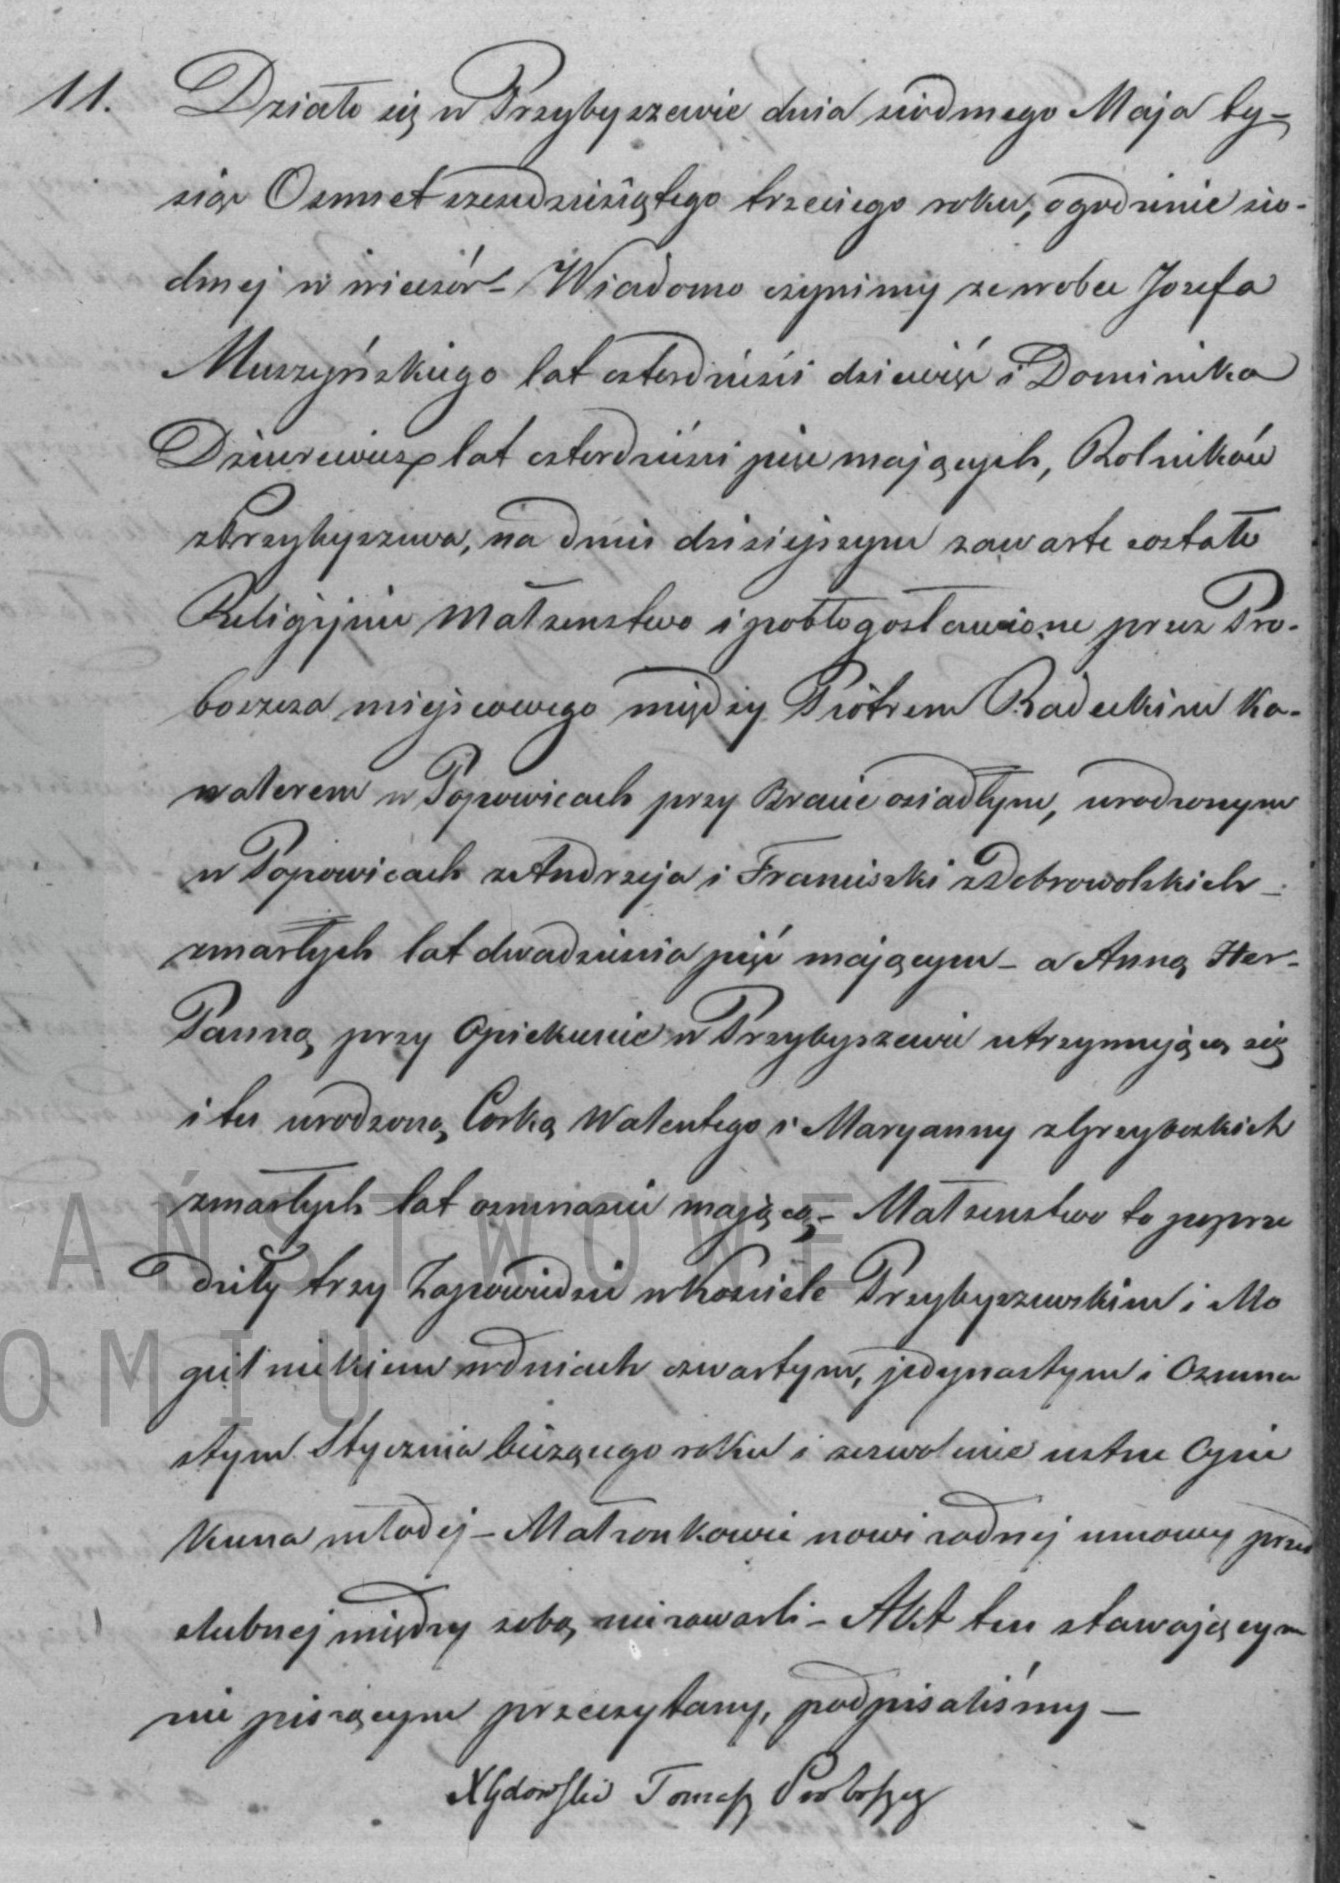 11. Działo się w Przybyszewie dnia siodmego Maja ty-
siąc Osmset szesędziesiątego trzeciego roku, ogodzinie sio-
dmej w wieczór – Wiadomo czynimy ze wobec Jozefa
Muszyńskiego lat czterdzieści dziewięć i Dominika
lat czterdzieści pięć mających, Rolników
z Przybyszewa, na dniu dzisiejszym zawarte zostało
Religijnie Małzenstwo i pobłogosławione przez Pro-
boszcza miejscowego między Piotrem Radeckim Ka-
walerem w Popowicach przy Bracie osiadłym, urodzonym
w Popowicach z Andrzeja i Franciszki z Dobrowolskich –
zmarłych lat dwadzieścia pięć mającym – a Anną Her-
Panną przy Opiekunie w Przybyszewie utrzymującą się
i tu urodzoną Corką Walentego i Maryanny z Grzyboskich
zmarłych lat osmnaście mającą – Małzenstwo to poprze
dziły trzy Zapowiedzie w Kosciele Przybyszewskim i Mo
gielnickiem w dniach czwartym, jedynastym i Osmna
stym Stycznia bieżącego roku i zezwolenie ustne Opie
kuna młodej – Małzonkowie nowi zadnej umowy przed
slubnej między sobą niezawarli – Akt ten stawającym
nie piszącym przeczytany, podpisaliśmy –
X Gdowski Tomasz Proboszcz
PAŃSTWOWE
OMIU